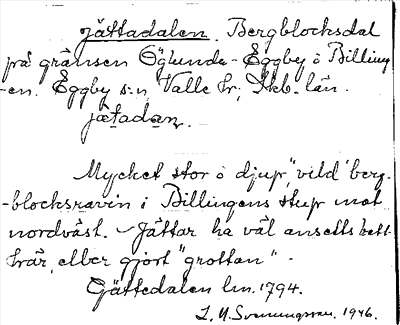 Jättadalen. Bergblocksdal
på gränsen Öglunda - Eggby å Billing
-en. Eggby s:n, Valle hr; Skb. län.
jætadan.
Mycket stor o djup, "vild" berg-
-blocksravin i Billingens stup mot
nordväst. - Jättar ha väl ansetts hatt
här, eller gjort "grottan" -
Gättedalen lm. 1794.
1946.